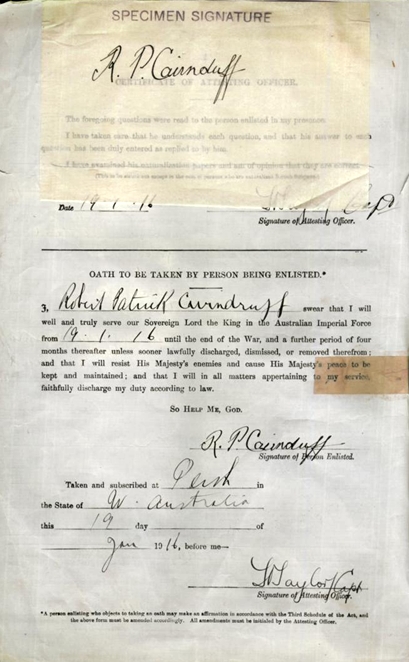 SPECIMEN SIGNATURE
R. P. Cairnduff
CERTIFICATE OF ATTESTING OFFICER.
The foregoing questions were read to the person enlisted in my presence.
I have taken care that he understands each question, and that his answer to each
question has been duly entered as replied to by him.
I have examined his naturalization papers and am of opinion that they are correct.
Date 19.1.16
Capt
Signature of Attesting Officer.
OATH TO BE TAKEN BY PERSON BEING ENLISTED.*
3, Robert Patrick Cairndruff swear that I will
well and truly serve our Sovereign Lord the King in the Australian Imperial Force
from 19.1.16 until the end of the War, and a further period of four
months thereafter unless sooner lawfully discharged, dismissed, or removed therefrom;
and that I will resist His Majesty's enemies and cause His Majesty's peace to be
kept and maintained; and that I will in all matters appertaining to my service,
faithfully discharge my duty according to law.
SO HELP ME, GOD.
R. P. Cairnduff
Signature of Person Enlisted.
Taken and subscribed at Perth in
the State of W. Australia
this 19 day of
Jan 1916, before me—
Taylor Capt
Signature of Attesting Officer.
*A person enlisting who objects to taking an oath may make an affirmation in accordance with the Third Schedule of the Act, and
the above form must be amended accordingly. All amendments must be initialed by the Attesting Officer.